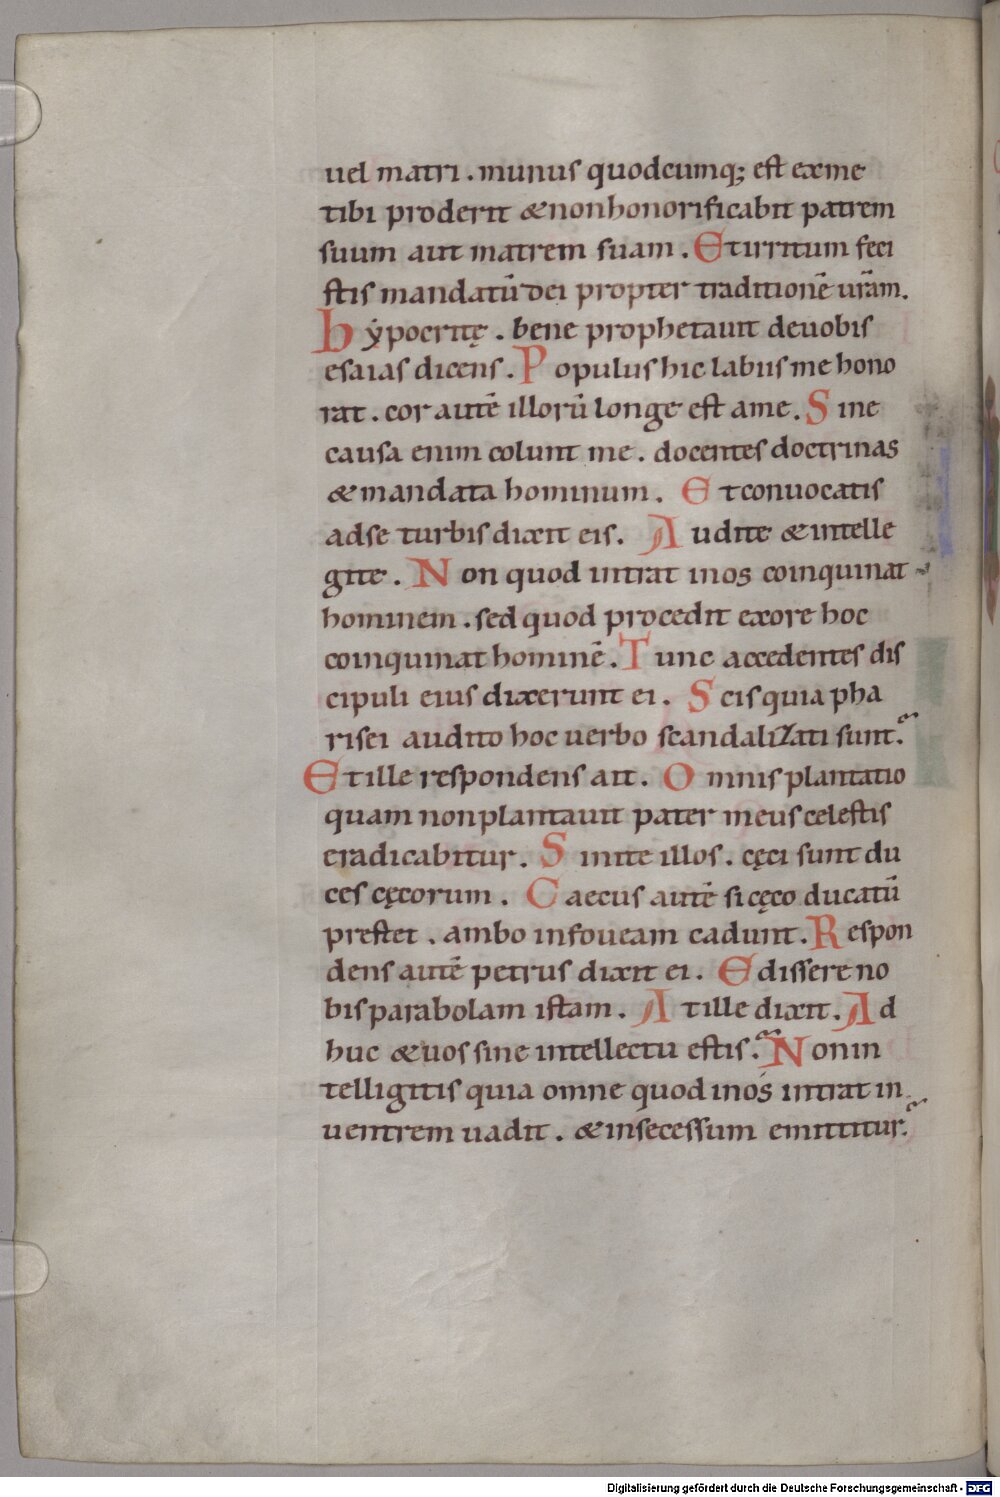 uel matri . munus quodcumq; est exme
tibi proderit & non honorificabit patrem
suum aut matrem suam . Et irritum feci
stis mandatū dei propter traditionē urām.
hẏpocritę . bene prophetauit deuobis
esaias dicens . Populus hic labiis me hono
rat . cor autē illorū longe est ame . Sine
causa enim colunt me . docentes doctrinas
& mandata hominum . Et conuocatis
adse turbis dixit eis . Audite & intelle
gite . Non quod intrat inos coinquinat
hominem . sed quod procedit exore hoc
coinquinat hominē . Tunc accedentes dis
cipuli eius dixerunt ei . Scis quia pha
risei audito hoc uerbo scandalizati sunt.
Et ille respondens ait . Omnis plantatio
quam non plantauit pater meus celestis
eradicabitur . Sinite illos . cęci sunt du
ces cęcorum . Caecus autē si cęco ducatū
prestet . ambo infoueam cadunt . Respon
dens autē petrus dixit ei . Edissere no
bis parabolam istam . At ille dixit . Ad
huc & uos sine intellectu estis . Non in
telligitis quia omne quod inos intrat in
uentrem uadit . & insecessum emittitur.
Digitalisierung gefördert durch die Deutsche Forschungsgemeinschaft - DFG